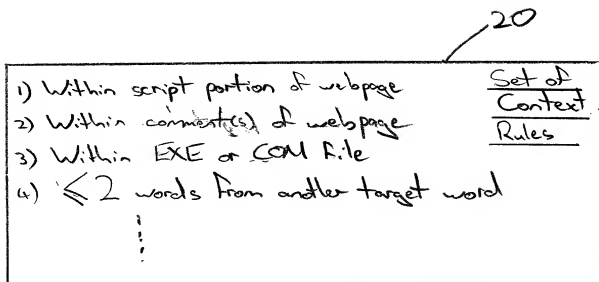 20
Set of
Context
Rules
1) Within script portion of webpage
2) Within comment(s) of webpage
3) Within EXE or COM File
4) ≤ 2 words from another target word